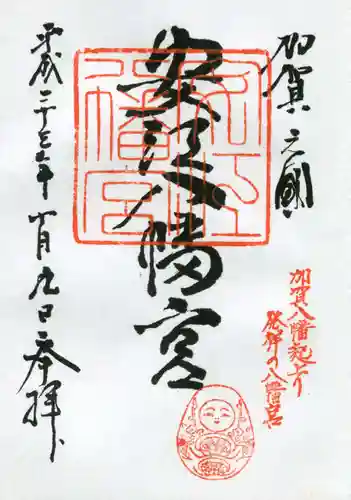 加賀之國
安江八幡宮
平成二十七年十月九日奉拝
安江
八幡宮
加賀八幡起上り
発祥の八幡宮